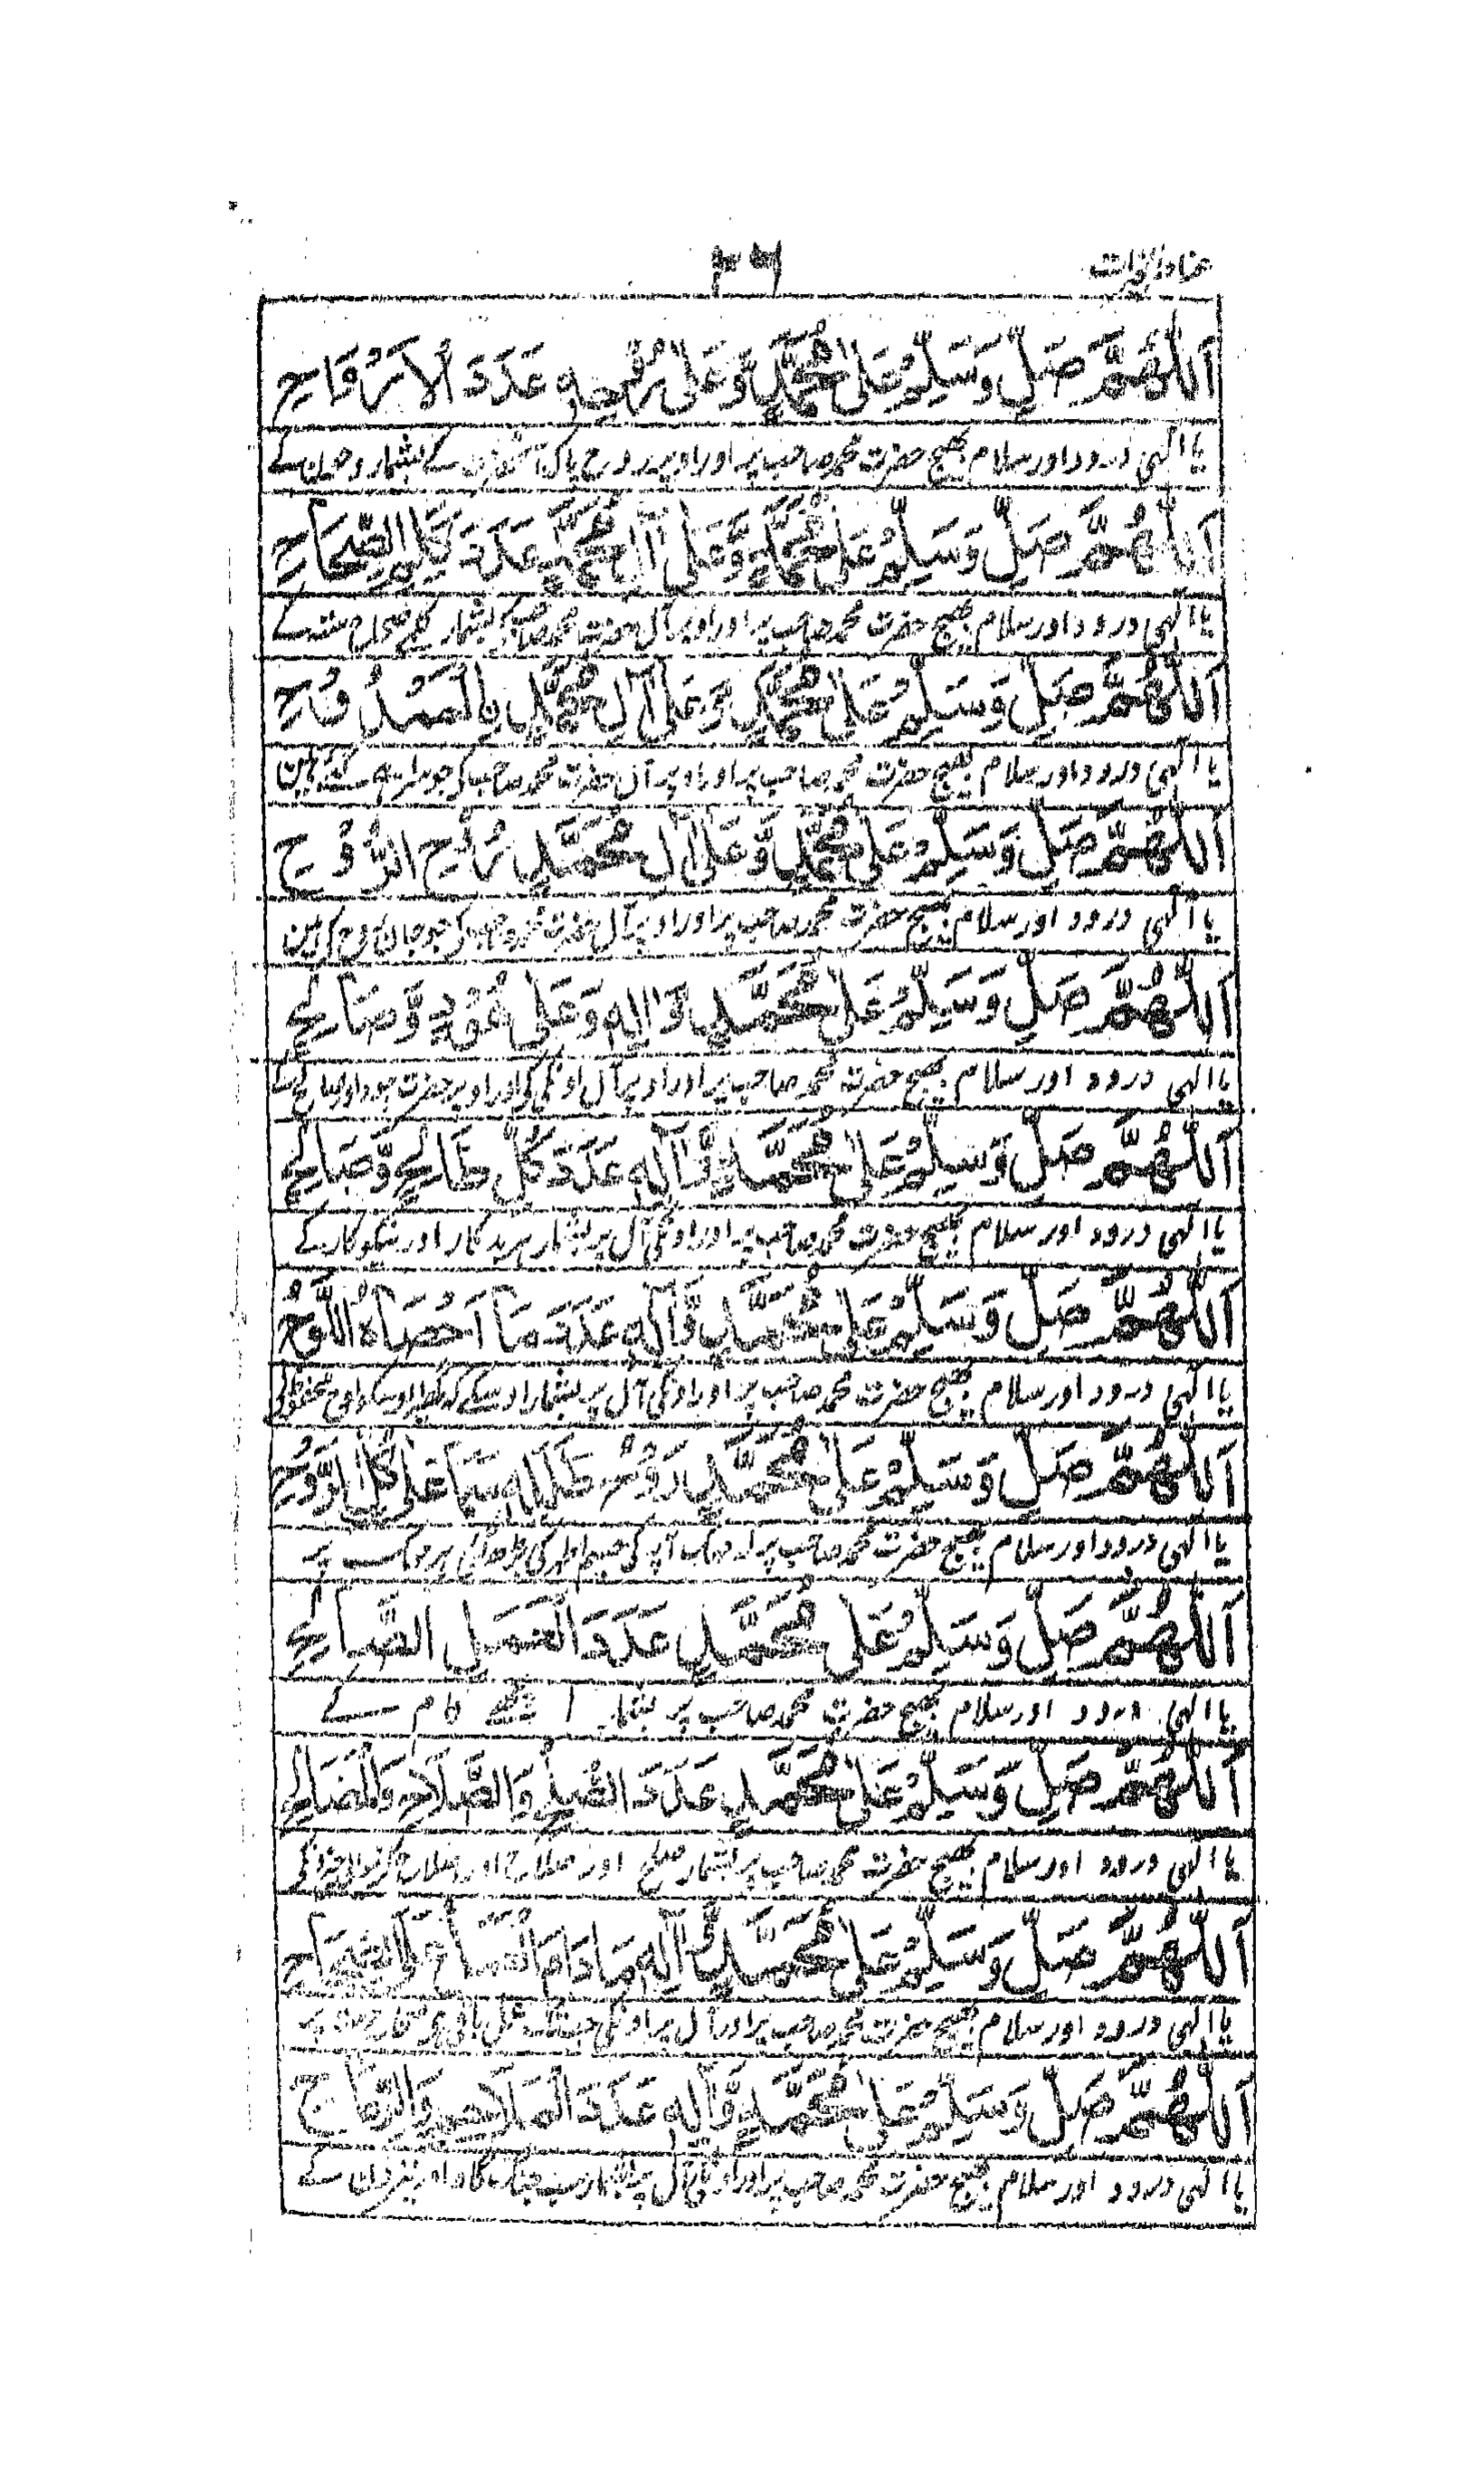 ۳۶
اَللّٰهُمَّ صَلِّ وَسَلِّمْ عَلٰى مُحَمَّدٍ وَّعَلٰى رُوْحِهٖ عَدَدَ الْاَرْوَاحِ
یا الٰہی درود اور سلام بھیج حضرت محمد صاحب پر اور اوپر روح پاک کے بشمار روحوں کے
اَللّٰهُمَّ صَلِّ وَسَلِّمْ عَلٰى مُحَمَّدٍ وَّعَلٰى اٰلِ مُحَمَّدٍ عَدَدَ كَلِمِ الصِّحَاحِ
یا الٰہی درود اور سلام بھیج حضرت محمد صاحب پر اور اوپر آل حضرت محمد صاحب کے بشمار کلمے صحاح ستہ کے
اَللّٰهُمَّ صَلِّ وَسَلِّمْ عَلٰى مُحَمَّدٍ وَّعَلٰى اٰلِ مُحَمَّدٍ
یا الٰہی درود اور سلام بھیج حضرت محمد صاحب پر اور اوپر آل حضرت محمد صاحب کی جو
اَللّٰهُمَّ صَلِّ وَسَلِّمْ عَلٰى مُحَمَّدٍ وَّعَلٰى اٰلِ مُحَمَّدٍ رُوْحِ الرُّوْحِ
یا الٰہی درود اور سلام بھیج حضرت محمد صاحب پر اور اوپر آل حضرت محمد صاحب کی جو جان روح کی ہین
اَللّٰهُمَّ صَلِّ وَسَلِّمْ عَلٰى مُحَمَّدٍ وَّاٰلِهٖ وَعَلٰى هُوْدٍ وَّصَالِحٍ
یا الٰہی درود اور سلام بھیج حضرت محمد صاحب پر اور اوپر آل اونکی کی اور اوپر حضرت ہود اور صالح کے
اَللّٰهُمَّ صَلِّ وَسَلِّمْ عَلٰى مُحَمَّدٍ وَّاٰلِهٖ عَدَدَ كُلِّ طَالِحٍ وَّصَالِحٍ
یا الٰہی درود اور سلام بھیج حضرت محمد صاحب پر اور اونکی آل پر بشمار ہر بدکار اور نیکوکار کے
اَللّٰهُمَّ صَلِّ وَسَلِّمْ عَلٰى مُحَمَّدٍ وَّاٰلِهٖ عَدَدَ مَا اَحْصَاهُ اللَّوْحُ
یا الٰہی درود اور سلام بھیج حضرت محمد صاحب پر اور اونکی آل پر بشمار اوسکے کہ اوسکو لوح محفوظ نے
اَللّٰهُمَّ صَلِّ وَسَلِّمْ عَلٰى مُحَمَّدٍ
یا الٰہی درود اور سلام بھیج حضرت محمد صاحب پر
اَللّٰهُمَّ صَلِّ وَسَلِّمْ عَلٰى مُحَمَّدٍ عَدَدَ الْعَمَلِ الصَّالِحِ
یا الٰہی درود اور سلام بھیج حضرت محمد صاحب پر بشمار اچھے کام کے
اَللّٰهُمَّ صَلِّ وَسَلِّمْ عَلٰى مُحَمَّدٍ عَدَدَ الصُّلْحِ وَالصَّلَاحِ وَالْمَصَالِحِ
یا الٰہی درود اور سلام بھیج حضرت محمد صاحب پر بشمار صلح اور صلاح اور
اَللّٰهُمَّ صَلِّ وَسَلِّمْ عَلٰى مُحَمَّدٍ وَّاٰلِهٖ مَا دَامَ
یا الٰہی درود اور سلام بھیج حضرت محمد صاحب پر اور آل پر اونکی
اَللّٰهُمَّ صَلِّ وَسَلِّمْ عَلٰى مُحَمَّدٍ وَّاٰلِهٖ عَدَدَ الْمَلَاحِمِ وَالرِّمَاحِ
یا الٰہی درود اور سلام بھیج حضرت محمد صاحب پر اور اونکی آل پر بشمار سب جنگ گاہ اور نیزون کے